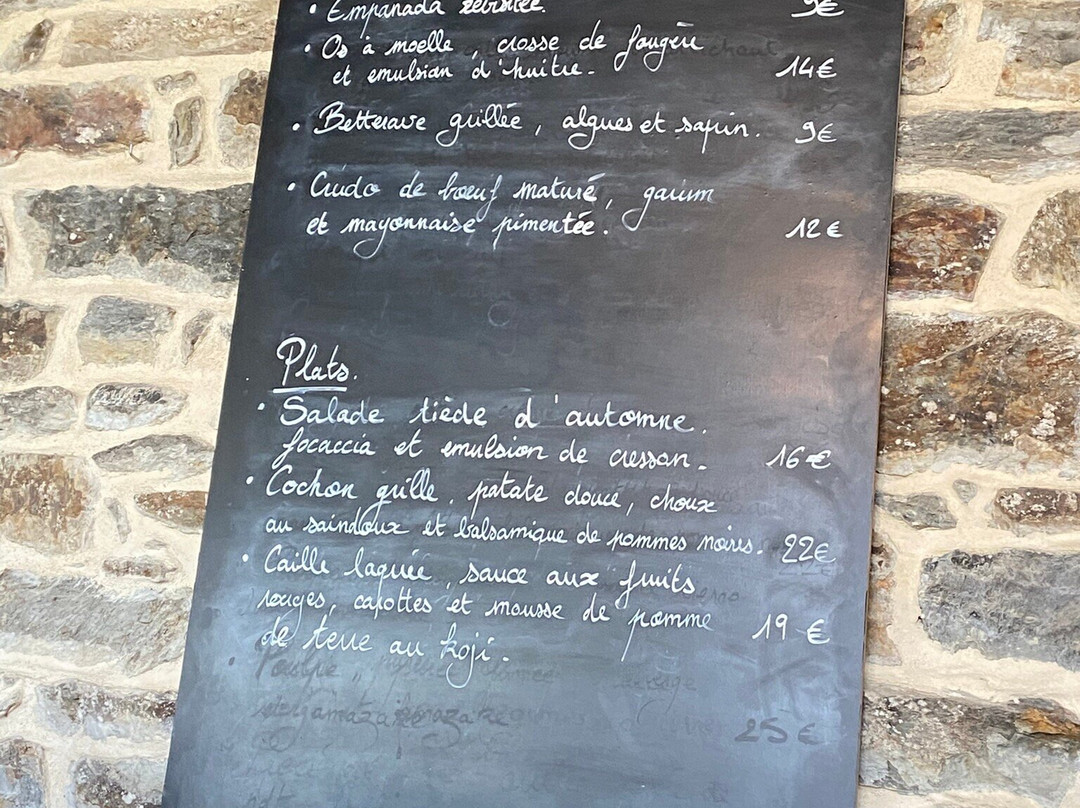 • Empanada 9€
• Os à moelle, crosse de fougère
et emulsion d'huitre. 14€
• Betterave grillée, algues et sapin. 9€
• Crudo de bœuf maturé, garum
et mayonnaise pimentée. 12€
Plats.
• Salade tiède d'automne.
focaccia et emulsion de cresson. 16€
• Cochon grille, patate douce, choux
au saindoux et balsamique de pommes noires. 22€
• Caille laquée, sauce aux fruits
rouges, carottes et mousse de pomme 19€
de terre au koji.
25€